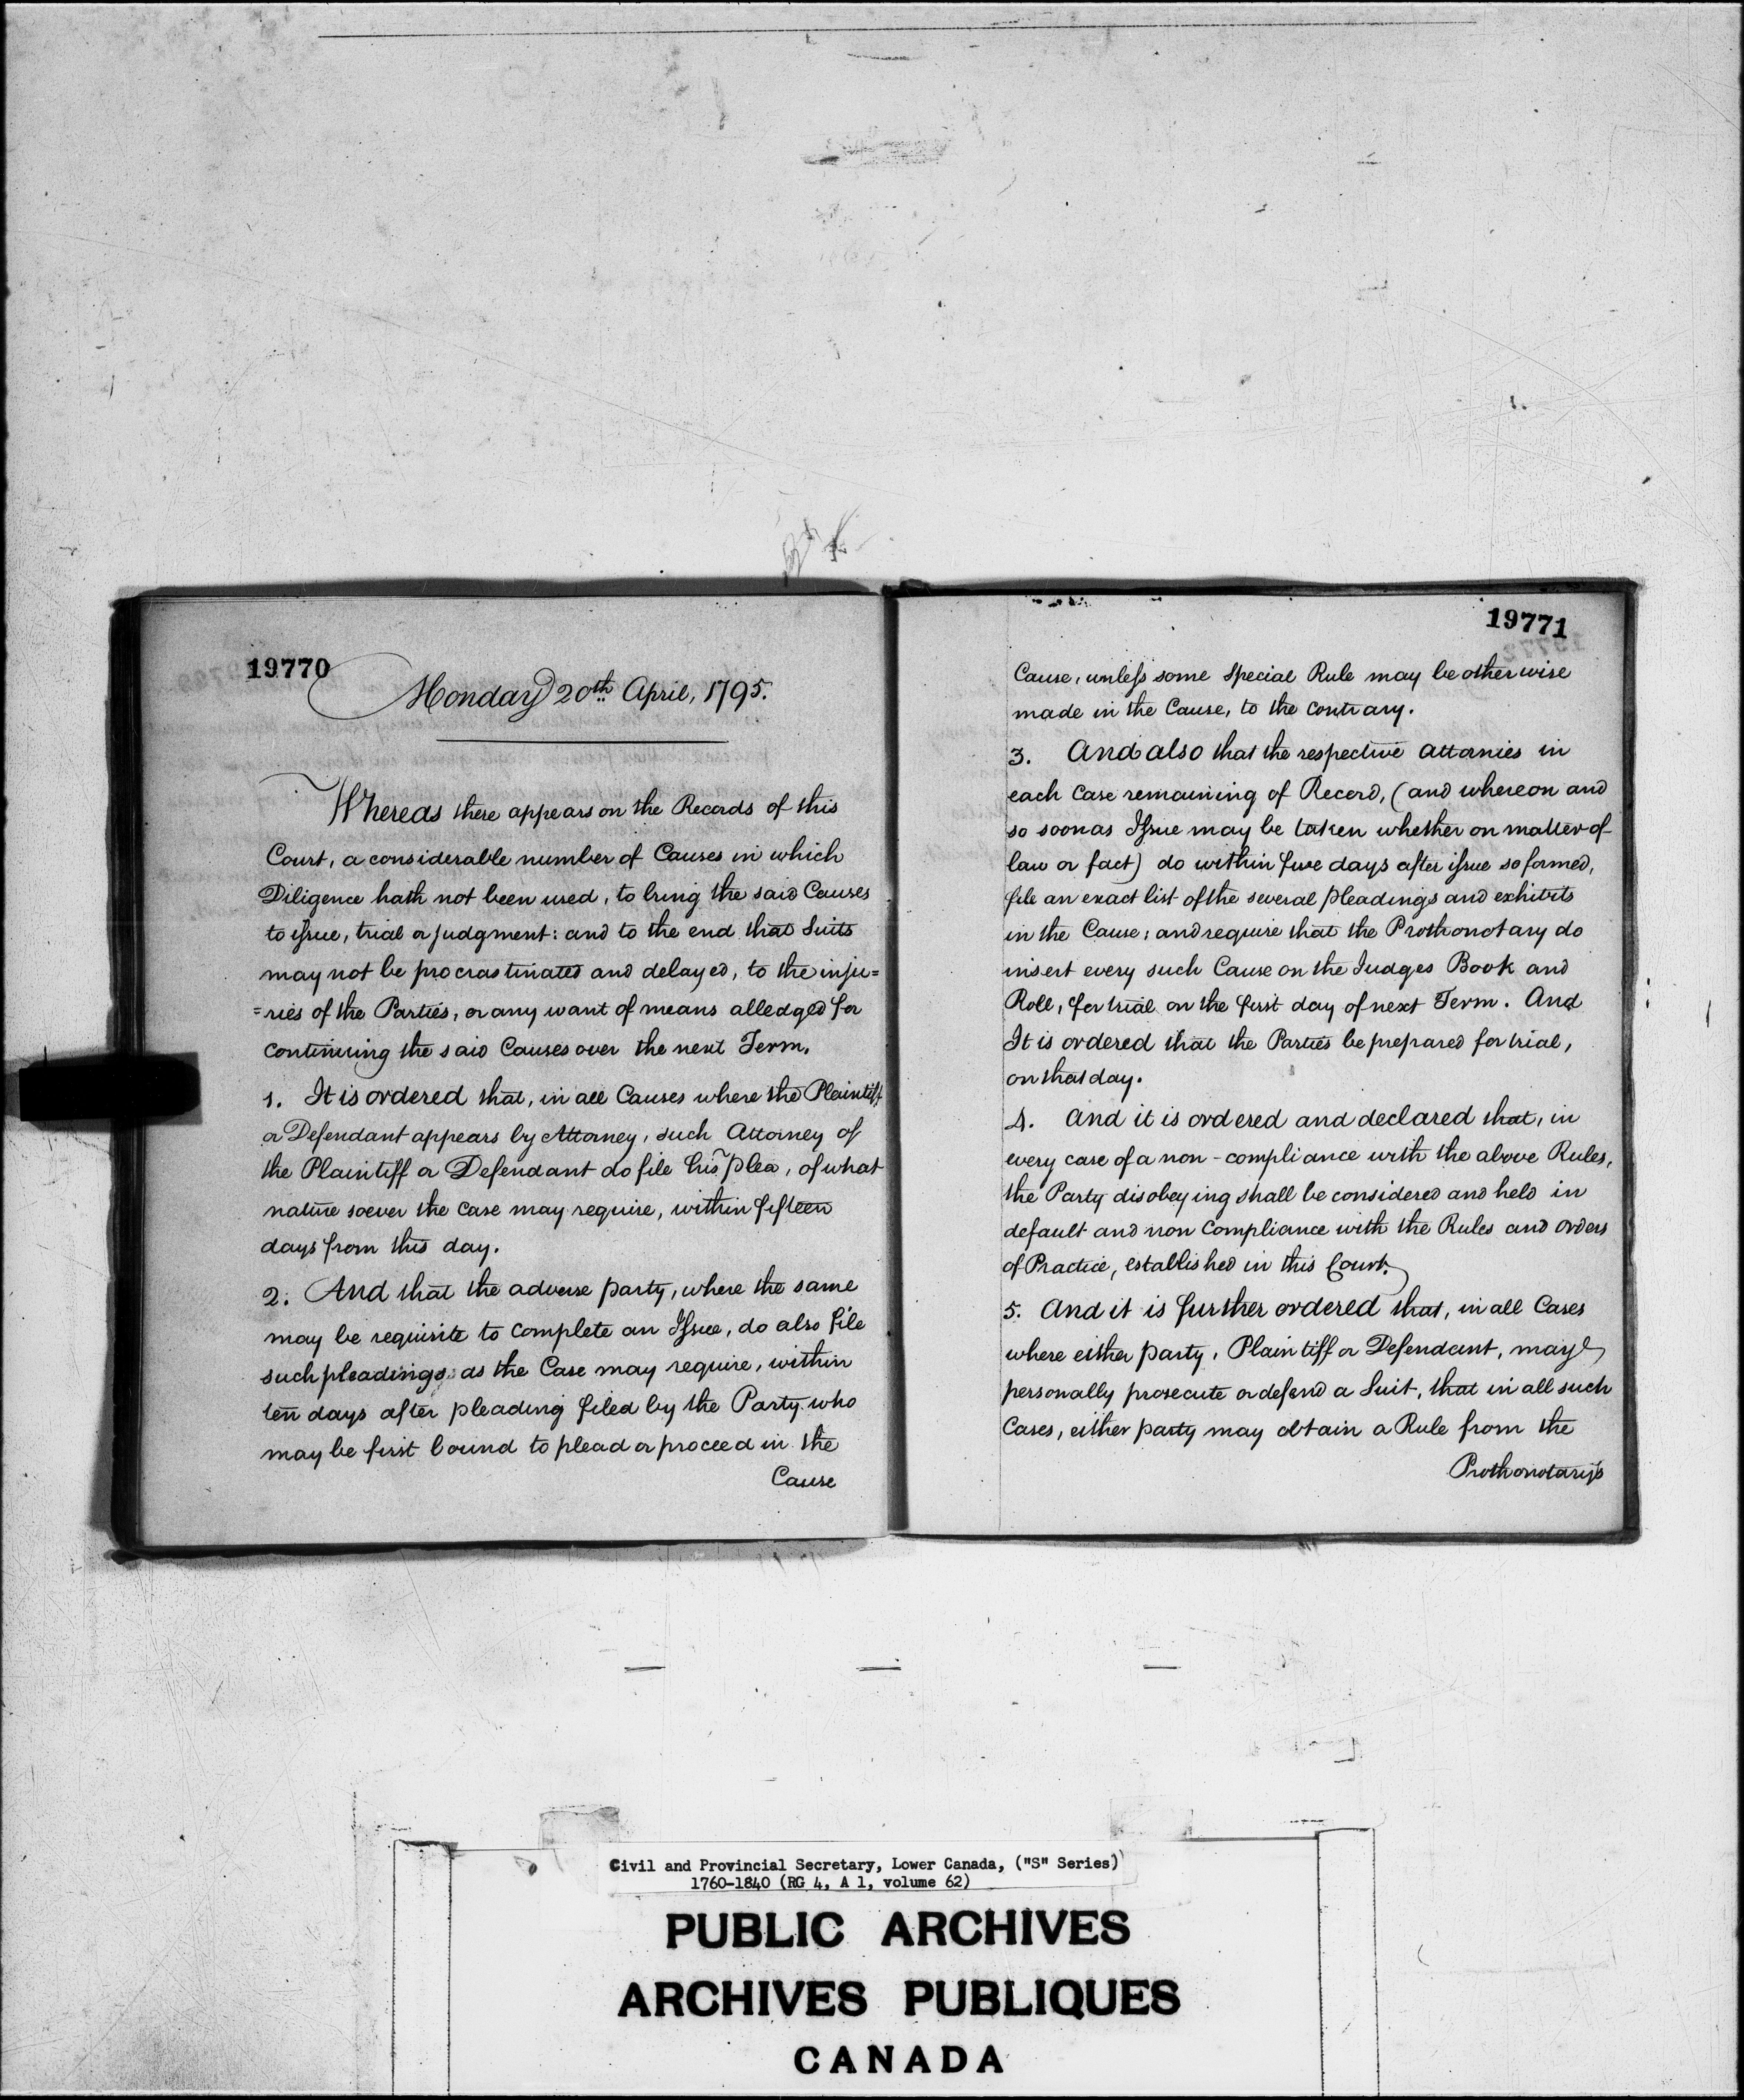 19770
Monday 20th April, 1795.
Whereas there appears on the Records of this
Court, a considerable number of Causes in which
Diligence hath not been used, to bring the said Causes
to issue, trial or judgment: and to the end that Suits
may not be procrastinated and delayed, to the inju=
=ries of the Parties, or any want of means alledged for
continuing the said Causes over the next Term.
1. It is ordered that, in all Causes where the Plaintiff
or Defendant appears by Attorney, such Attorney of
the Plaintiff or Defendant do file his plea, of what
nature soever the case may require, within fifteen
days from this day.
2. And that the adverse party, where the same
may be requisite to complete an Issue, do also file
such pleadings as the Case may require, within
ten days after pleading filed by the Party who
may be first bound to plead or proceed in the
Cause
19771
Cause, unless some special Rule may be otherwise
made in the Cause, to the contrary.
3. And also that the respective attornies in
each case remaining of Record, (and whereon and
so soon as Issue may be taken whether on matter of
law or fact) do within five days after issue so formed,
file an exact list of the several pleadings and exhibits
in the Cause; and require that the Prothonotary do
insert every such Cause on the Judges Book and
Roll, for trial on the first day of next Term. And
It is ordered that the Parties be prepared for trial,
on that day.
4. And it is ordered and declared that, in
every case of a non-compliance with the above Rules,
the Party disobeying shall be considered and held in
default and non compliance with the Rules and orders
of Practice, established in this Court.
5. And it is further ordered that, in all Cases
where either party, Plaintiff or Defendant, may
personally prosecute or defend a Suit, that in all such
Cases, either party may obtain a Rule from the
Prothonotary's
Civil and Provincial Secretary, Lower Canada, ("S" Series)
1760-1840 (RG 4, A 1, volume 62)
PUBLIC ARCHIVES
ARCHIVES PUBLIQUES
CANADA